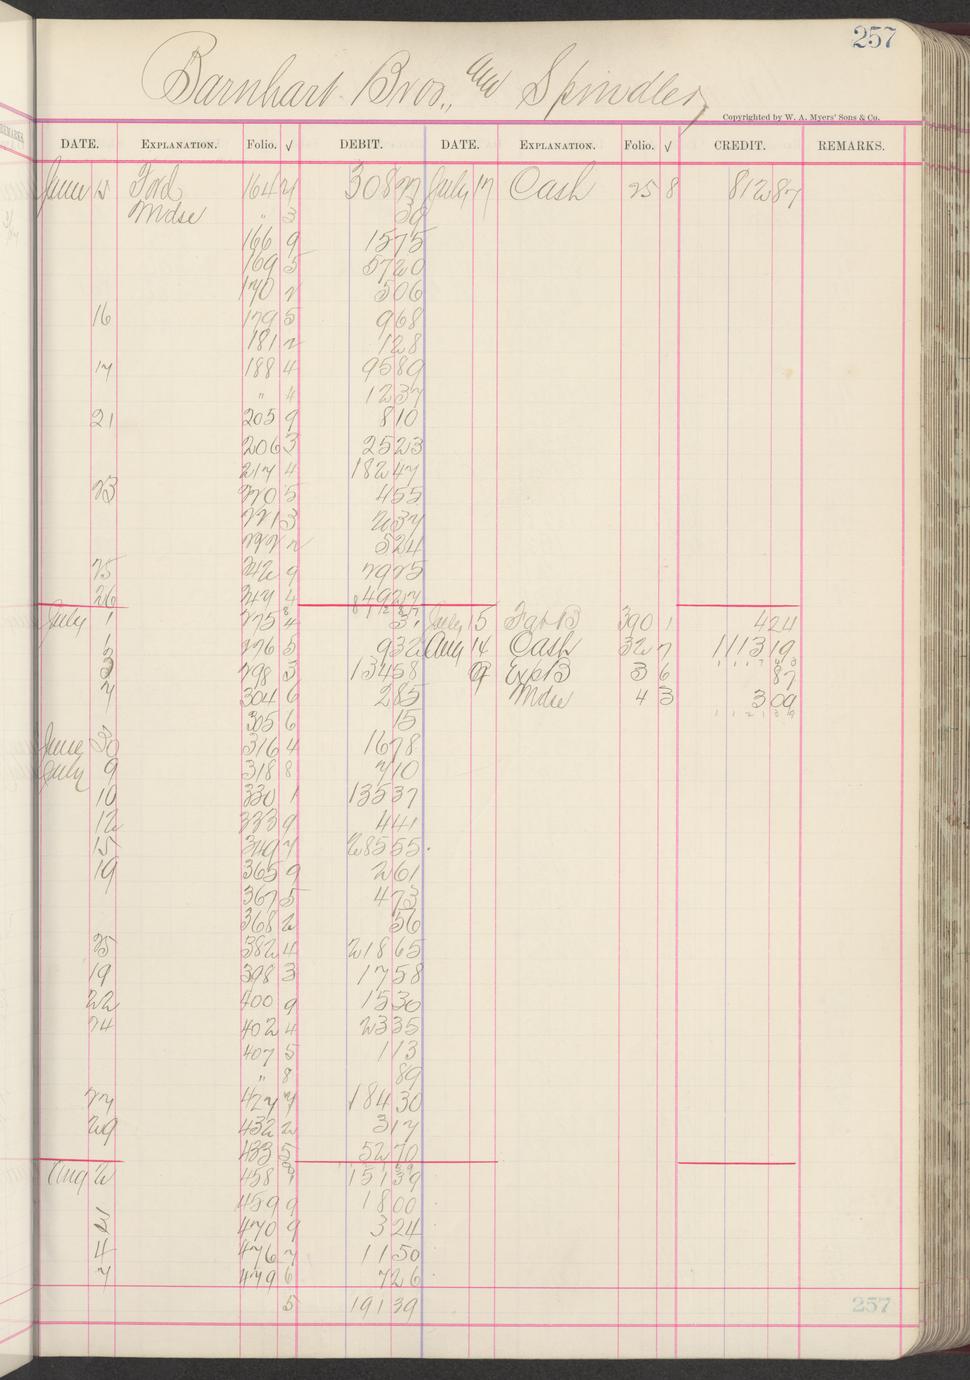 257
Barnhart Bros., and Spindler
Copyrighted by W. A. Myers' Sons & Co.
DATE. EXPLANATION. Folio. √ DEBIT. DATE. EXPLANATION. Folio. √ CREDIT. REMARKS.
June 15 Ford 164 7 308 77 July 17 Cash 25 8 812 87
Mdse " 3 39
166 9 15 75
169 5 57 20
170 2 5 06
16 179 5 9 68
181 2 1 28
17 188 4 95 89
" 4 12 37
21 205 9 8 10
206 3 25 23
217 4 182 47
23 220 5 4 55
221 3 2 37
222 2 5 24
25 242 9 29 25
26 247 4 49 27
812 87
July 1 275 4 July 15 390 1 4 24
276 5 9 32 Aug 14 Cash 32 7 1113 19
3 298 3 134 58 Exp B 3 6 87
7 304 6 2 85 Mdse 4 3 3 09
305 6 15
June 30 316 4 16 78
July 9 318 8 7 10
10 330 1 135 37
12 333 9 4 41
15 349 7 285 55
19 365 9 2 61
367 5 4 73
368 2 56
25 382 4 218 65
19 398 3 17 58
22 400 9 15 30
24 402 4 23 35
407 5 1 13
" 8 89
27 427 7 184 30
29 432 2 3 17
433 5 52 70
Aug 2 458 1 151 39
459 9 18 00
3 470 9 3 24
4 476 7 11 50
7 479 6 7 26
5 191 39
257